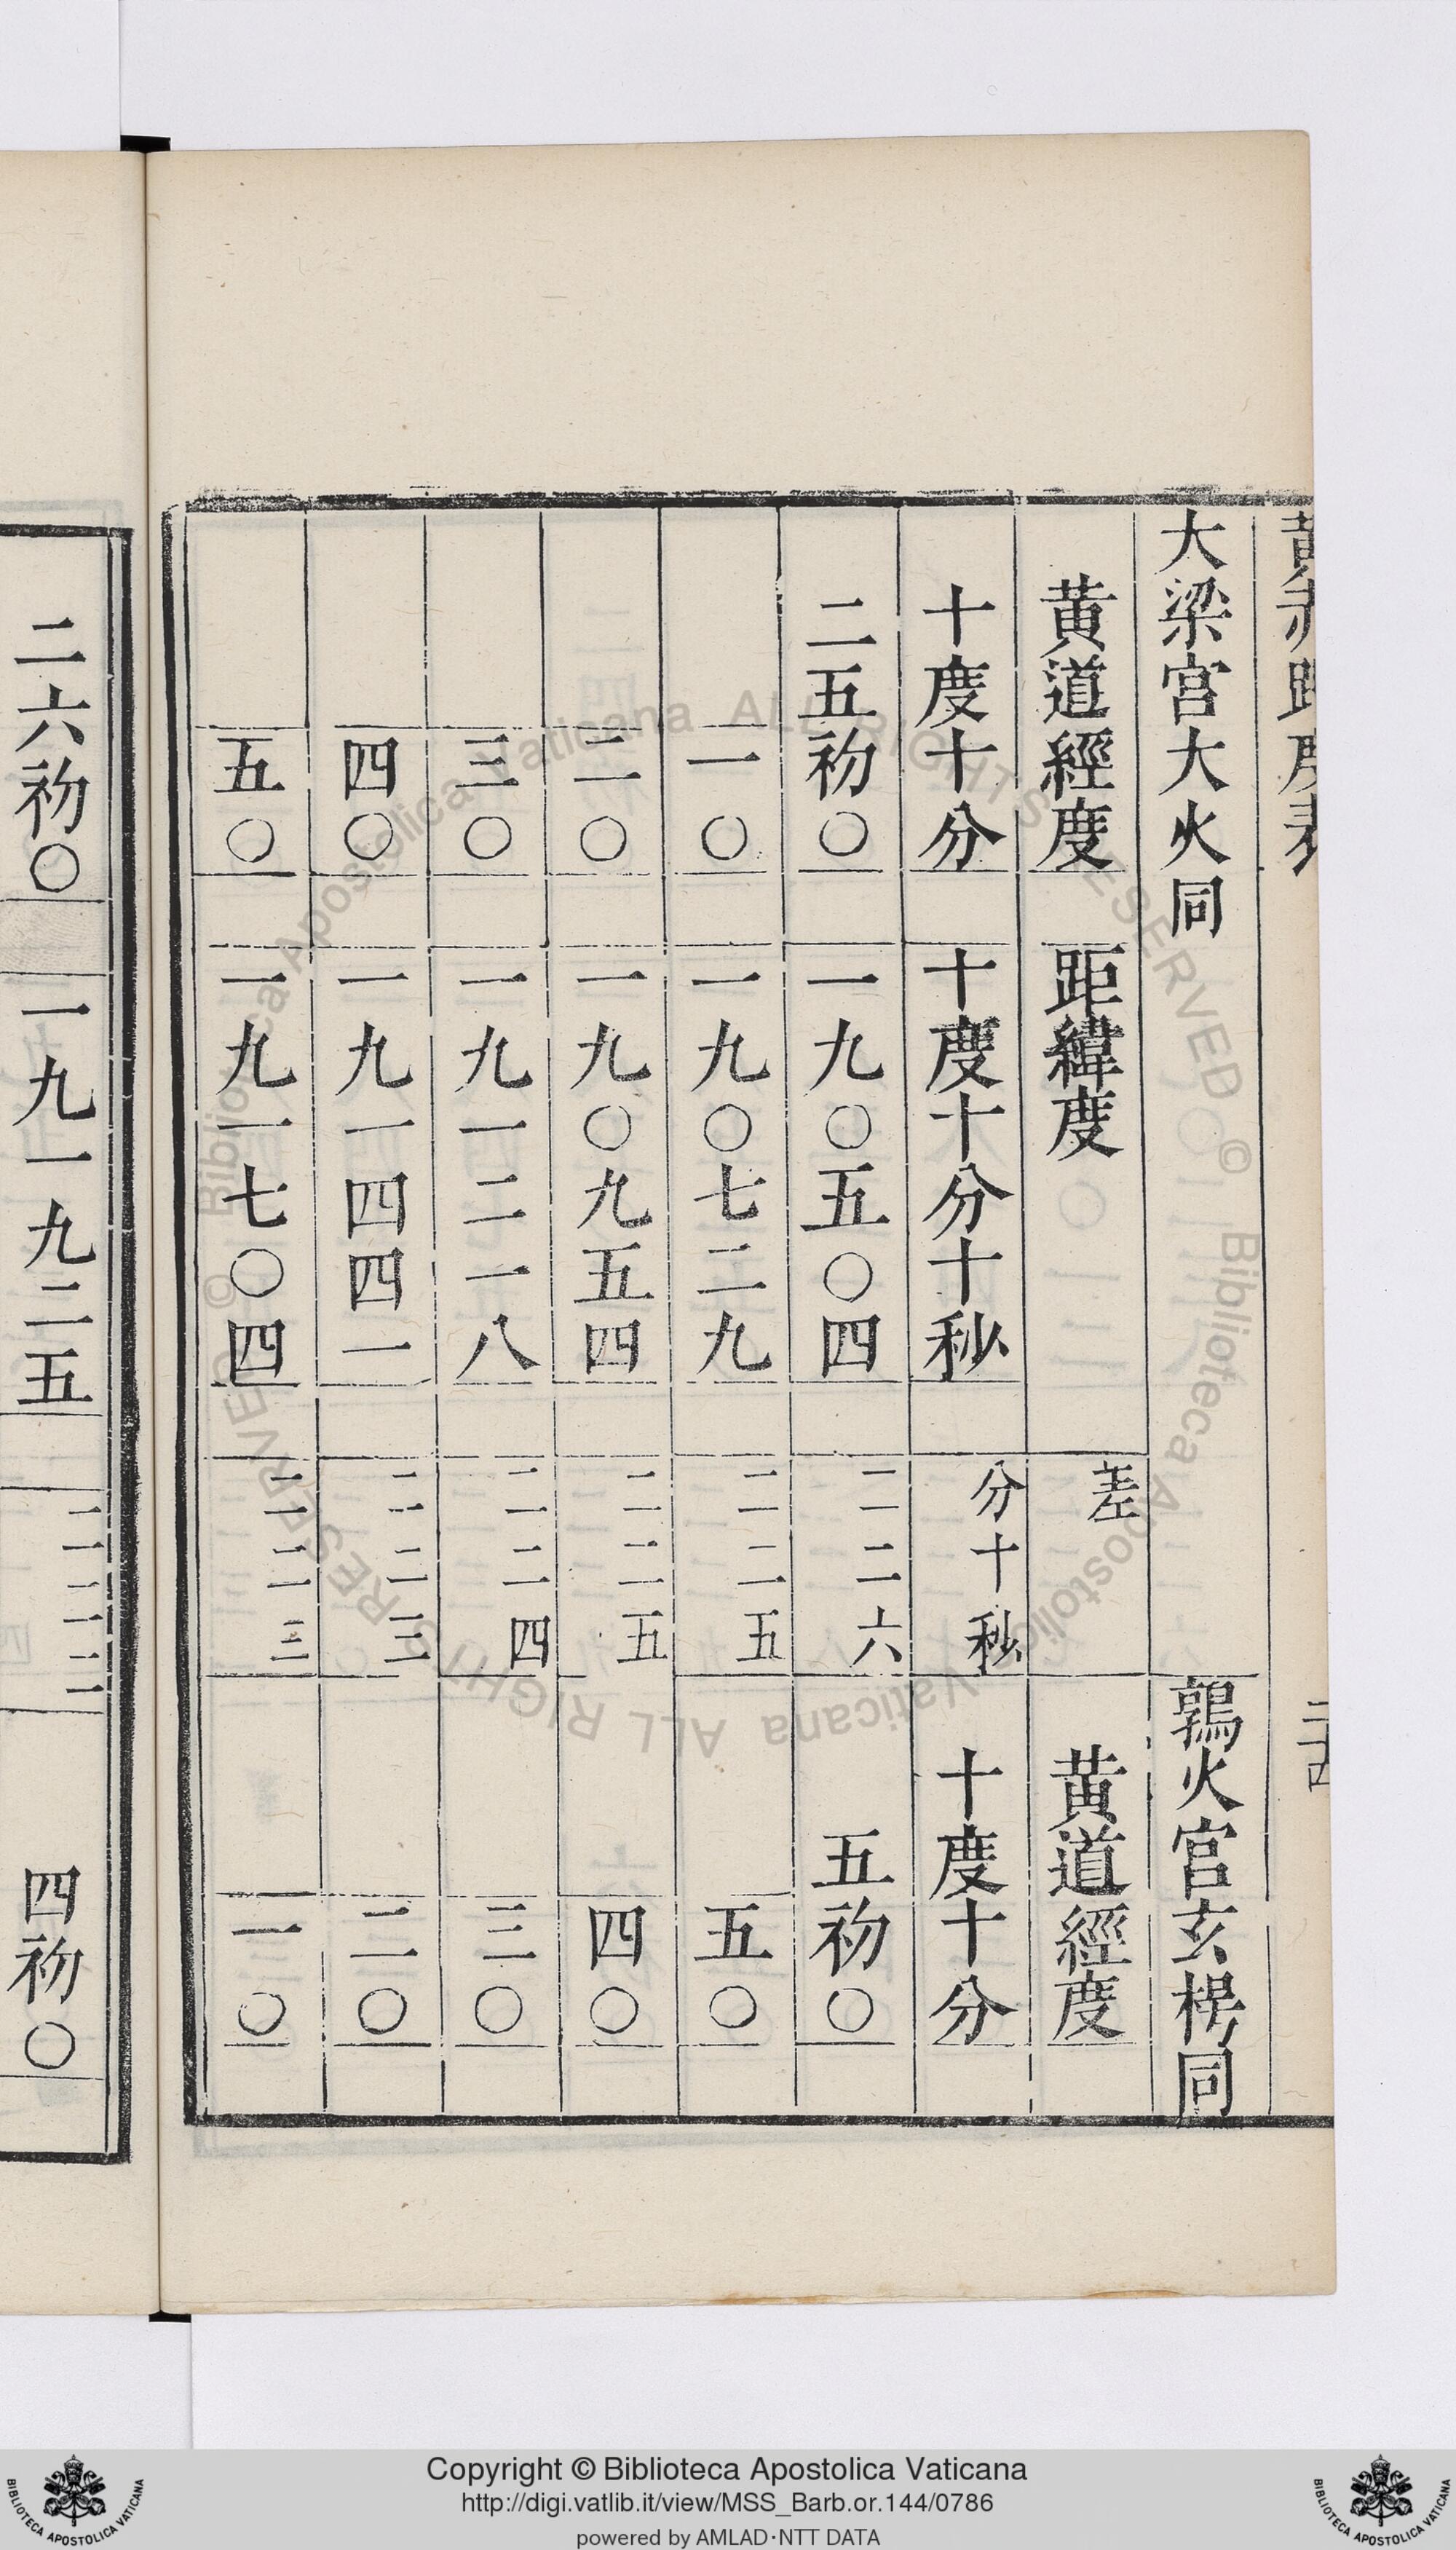 大梁宮大火同 鶉火官玄枵同
黃道經度 距緯度 差 黃道經度
十度十分 十度十分十秒 分十秒 十度十分
二五初〇 一九〇五〇四 二二六 五初〇
一〇 一九〇七二九 二二五 五〇
二〇 一九〇九五四 二二五 四〇
三〇 一九一二一八 二二四 三〇
四〇 一九一四四一 二二三 二〇
五〇 一九一七〇四 二二三 一〇
二六初〇 一九一九二五 二二二 四初〇
© Biblioteca Apostolica Vaticana ALL RIGHTS RESERVED
© Biblioteca Apostolica Vaticana ALL RIGHTS RESERVED
Copyright © Biblioteca Apostolica Vaticana
http://digi.vatlib.it/view/MSS_Barb.or.144/0786
powered by AMLAD·NTT DATA
BIBLIOTECA APOSTOLICA VATICANA
BIBLIOTECA APOSTOLICA VATICANA